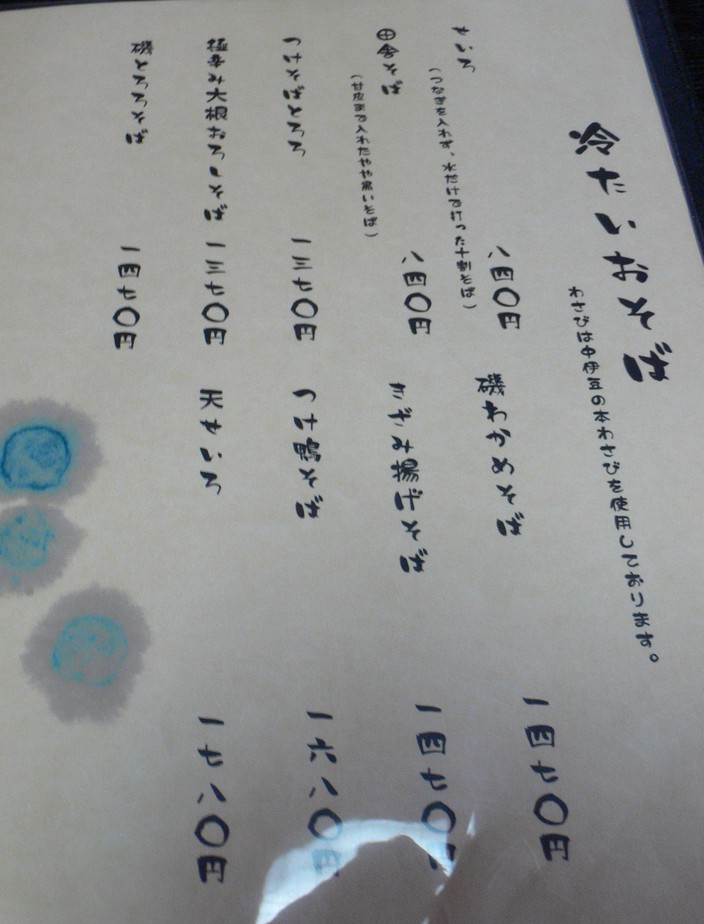 冷たいおそば
わさびは中伊豆の本わさびを使用しております。
せいろ 八四〇円
(つなぎを入れず、水だけで打った十割そば)
田舎そば 八四〇円
(甘皮まで入れたやや黒いそば)
つけそばとろろ 一三七〇円
極辛み大根おろしそば 一三七〇円
磯とろろそば 一四七〇円
磯わかめそば 一四七〇円
きざみ揚げそば 一四七〇円
つけ鴨そば 一六八〇円
天せいろ 一七八〇円